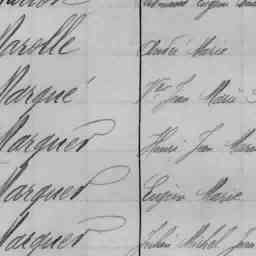 Marolle André Marie
Marqué Jean Marie
Marquer Henri Jean Marie
Marquer Eugène Marie
Marquer Julien Michel Jean